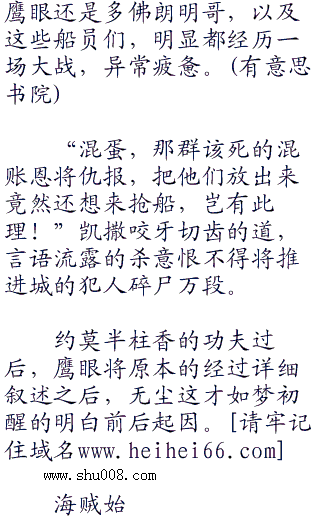 鹰眼还是多佛朗明哥，以及
这些船员们，明显都经历一
场大战，异常疲惫。(有意思
书院)
“混蛋，那群该死的混
账恩将仇报，把他们放出来
竟然还想来抢船，岂有此
理！”凯撒咬牙切齿的道，
言语流露的杀意恨不得将推
进城的犯人碎尸万段。
约莫半柱香的功夫过
后，鹰眼将原本的经过详细
叙述之后，无尘这才如梦初
醒的明白前后起因。[请牢记
住域名www.heihei66.com]
www.shu008.com
海贼始